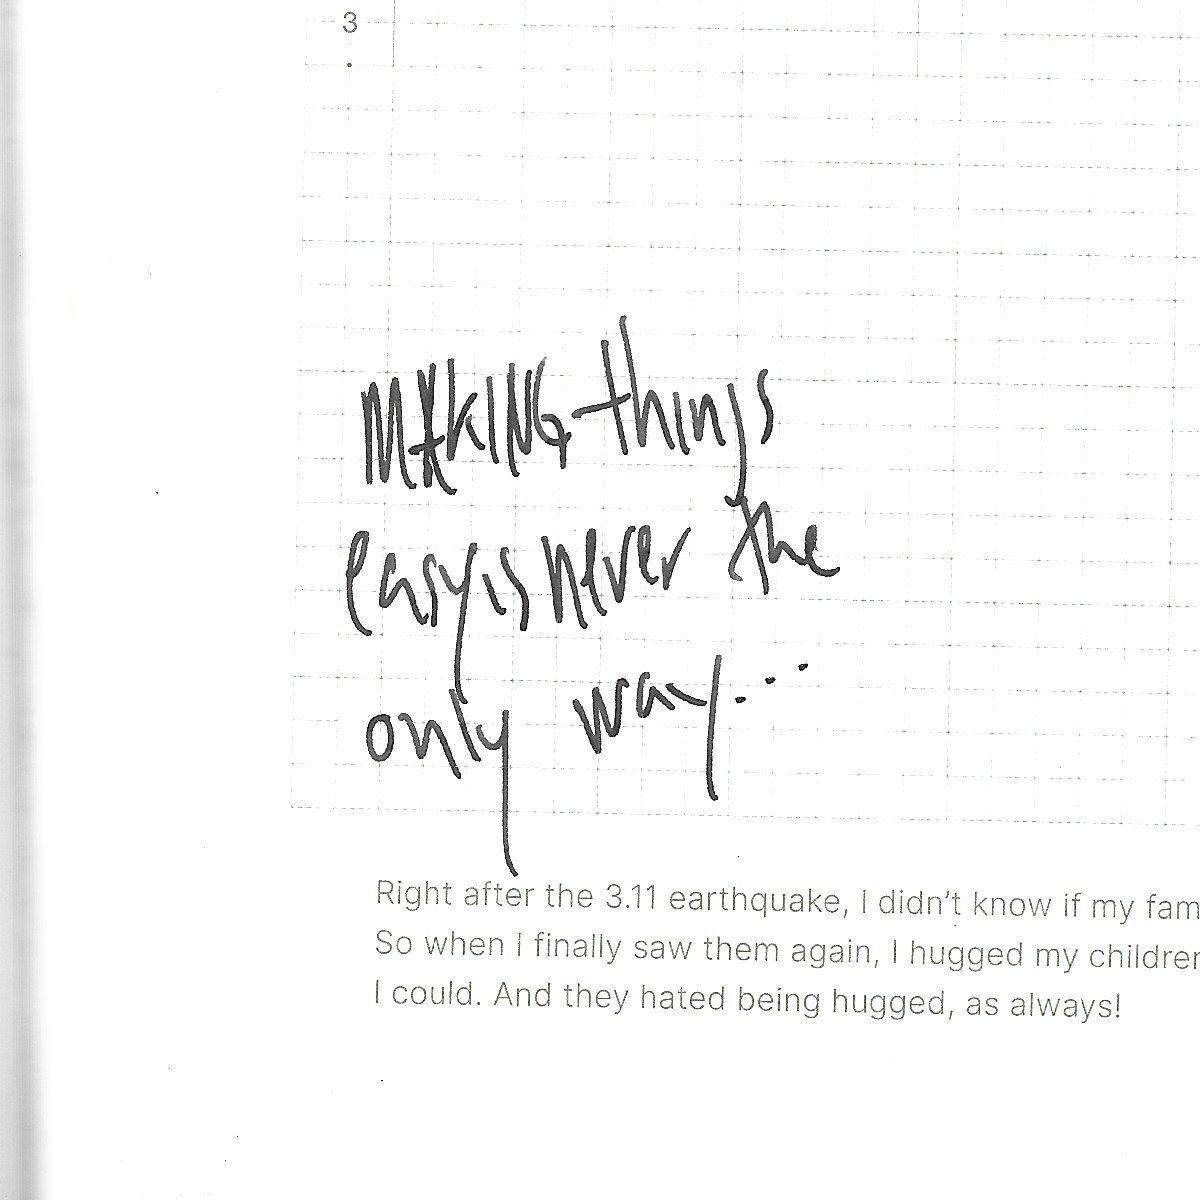 3
MAKING things
easy is never the
only way...
Right after the 3.11 earthquake, I didn't know if my fam
So when I finally saw them again, I hugged my children
I could. And they hated being hugged, as always!